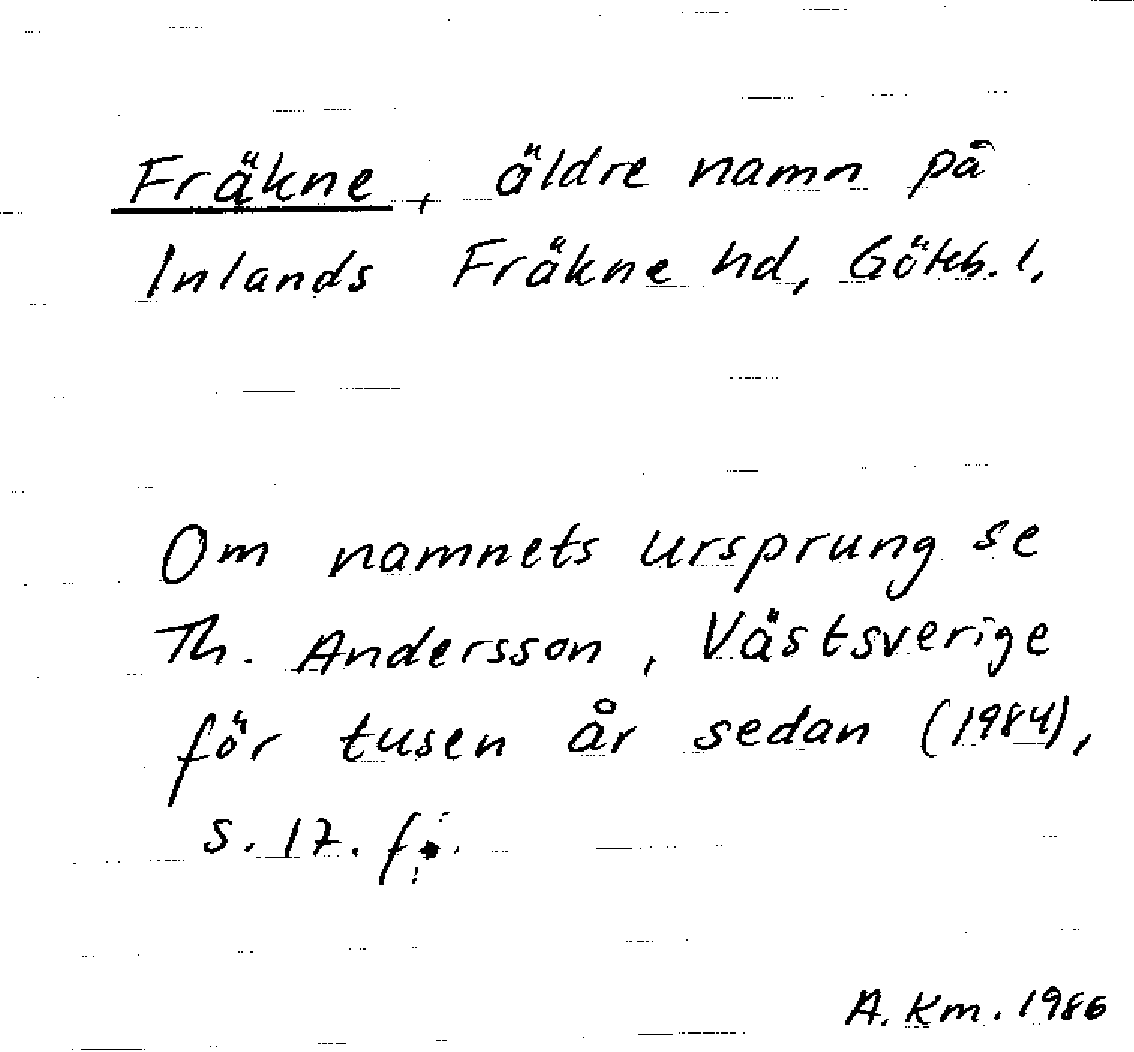 Fräkne, äldre namn på
Inlands Fräkne hd, Götb. l.
Om namnets ursprung se
Th. Andersson, Västsverige
för tusen år sedan (1984),
s. 17. f.
A. Km. 1986